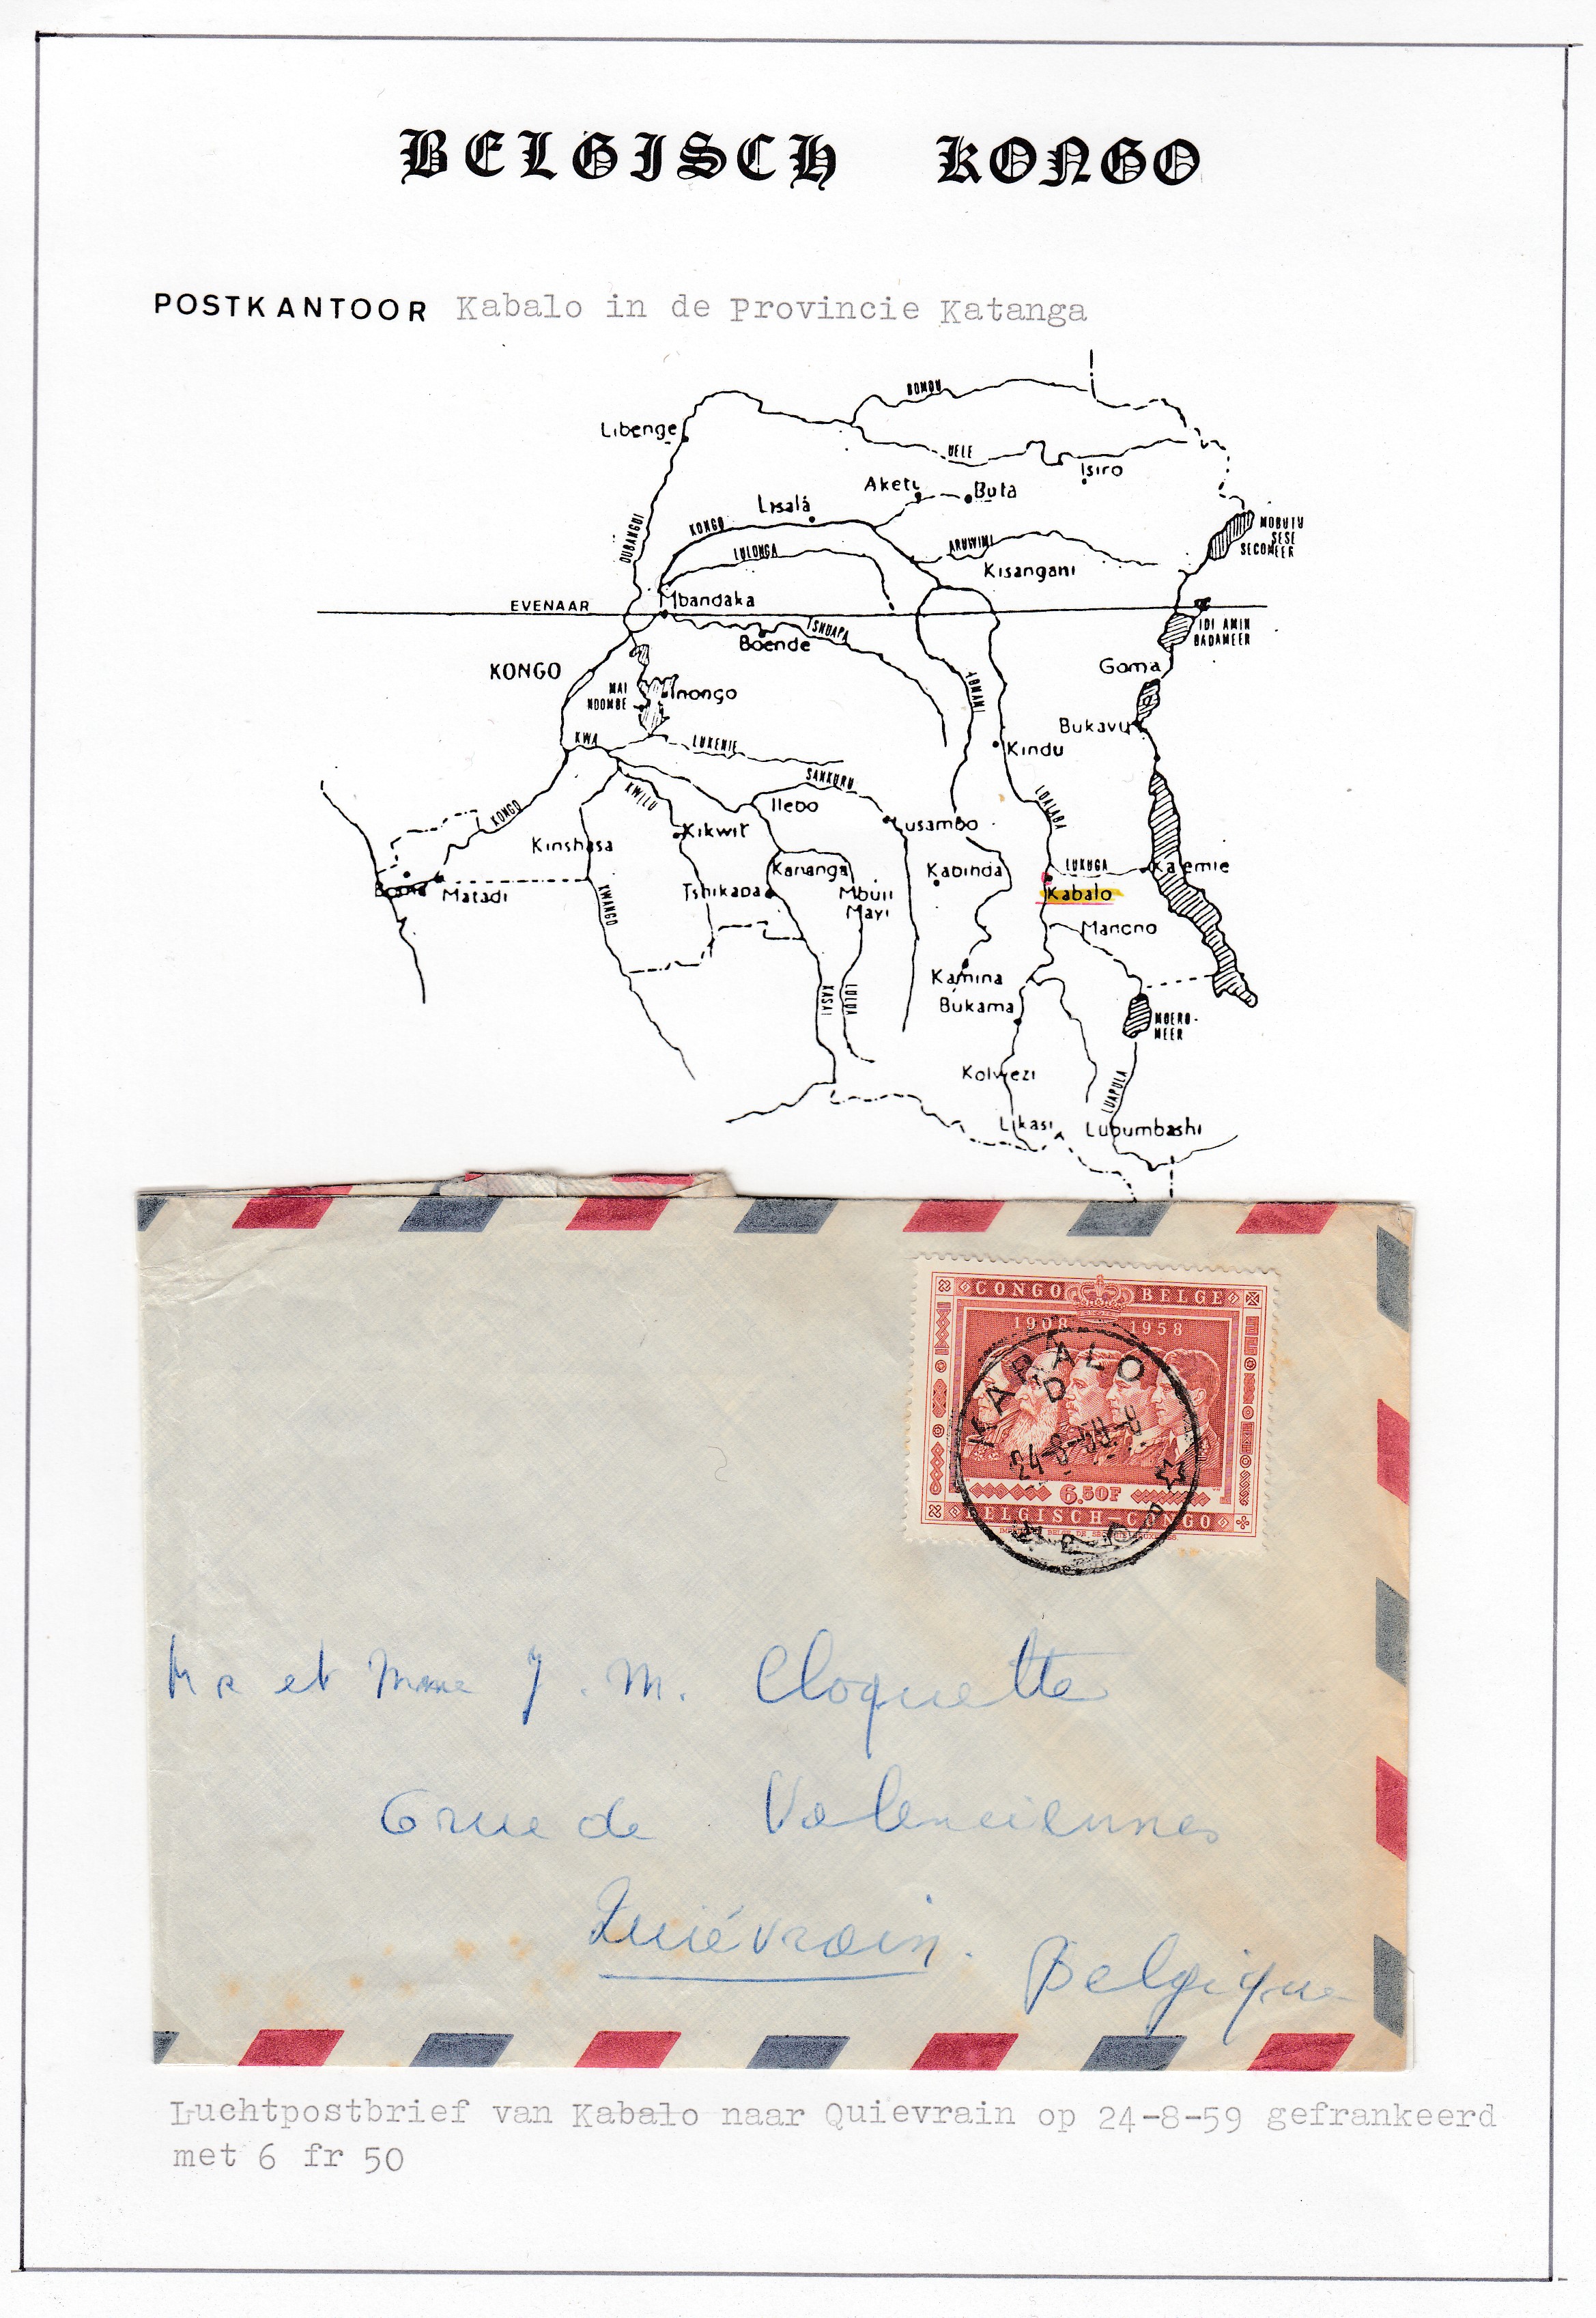 BELGISCH KONGO
POSTKANTOOR Kabalo in de Provincie Katanga
BOMOU
Libenge
UELE
Isiro
Aketi
Buta
Lisala
OUBANGUI
KONGO
LULONGA
ARUWIMI
MOBUTU
SESE
SECOMEER
Kisangani
EVENAAR
Mbandaka
TSHUAPA
Boende
IDI AMIN
DADAMEER
KONGO
Goma
MAI
NDOMBE
Inongo
LOMAMI
Bukavu
KWA
LUKENIE
Kindu
SANKURU
KWILU
Ilebo
LUALABA
KONGO
Kinshasa
Kikwit
Lusambo
Kananga
Kabinda
LUKUGA
Kalemie
Boma
Matadi
KWANGO
Tshikapa
Mbuji
Mayi
Kabalo
Manono
Kamina
KASAI
LULUA
Bukama
MOERO-
MEER
Kolwezi
LUAPULA
Likasi
Lubumbashi
CONGO BELGE
1908 1958
KABALO
D
24-8-59-9
6.50F
BELGISCH-CONGO
Mr et Mme J. M. Cloquette
6 rue de Valenciennes
Quiévrain. Belgique
Luchtpostbrief van Kabalo naar Quievrain op 24-8-59 gefrankeerd
met 6 fr 50